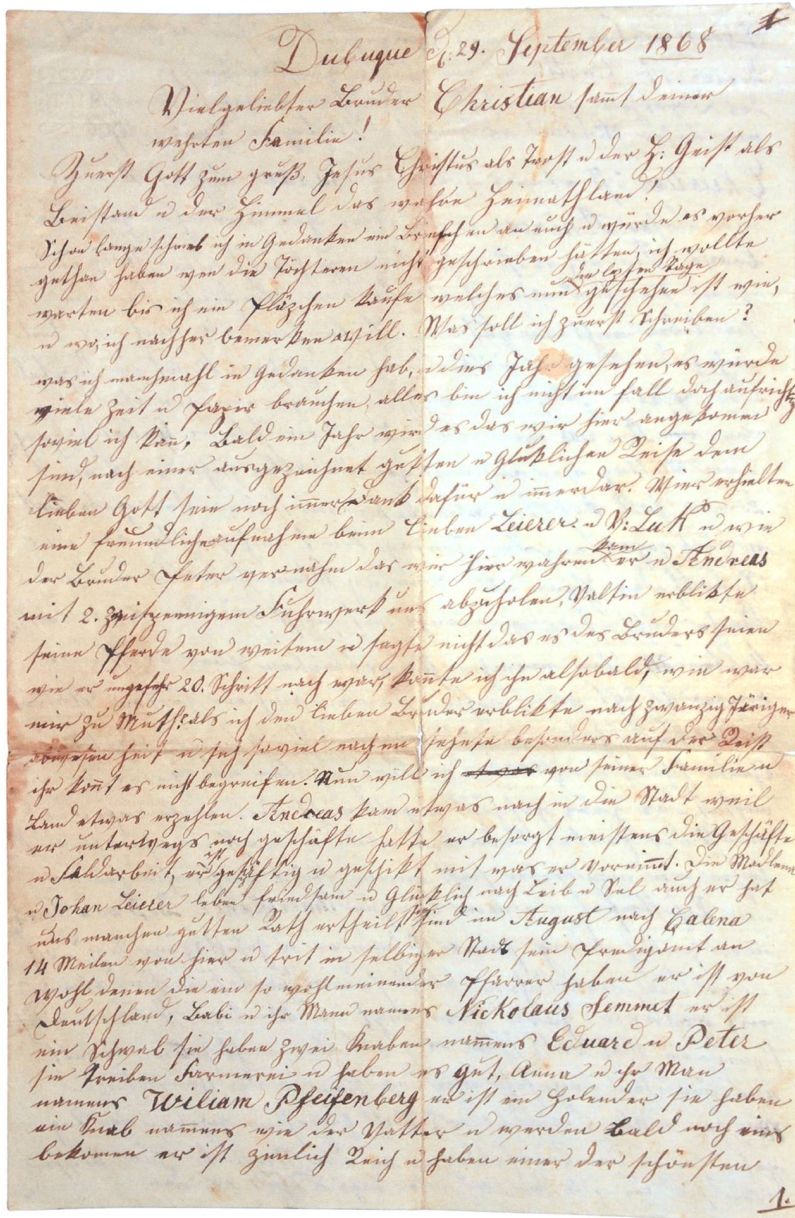 1
Dubuque d. 29. September 1868
Vielgeliebter Bruder Christian samt deiner
wehrten Familie!
Zuerst Gott zum gruß, Jesus Christus als Trost u der H: Geist als
Beistand u der Himmel das wahre Heimathland!
Schon lange schrieb ich in Gedanken ein Briefchen an euch u würde es vorher
gethan haben wen die Töchteren nicht geschrieben hätten, ich wollte
warten bis ich ein Pläzchen kaufe welches nun die lezten Tage geschehen ist wie,
u wo, ich nachher bemerken will. Was soll ich zuerst Schreiben?
was ich manchmahl in Gedanken hab, u dies Jahr gesehen, es würde
viele Zeit u Papir brauchen, alles bin ich nicht im fall doch aufricht
soviel ich kan, Bald ein Jahr wird es das wir hier angekomen
sind, nach einer ausgezeichnet gutten u Glüklichen Reise dem
lieben Gott sein noch immer Dank dafür u immerdar. Wier erhielten
eine freundliche aufnahme beim lieben Leierer u V: Luk u wie
der Bruder Peter vernahm das wir hier wahren kam er u Andreas
mit 2. zweispennigem Fuhrwerk uns abzuholen, Valtin erblikte
seine Pferde von weitem u sagte nicht das es des Bruders seien
wie er ungefehr 20. Schritt nach war, kannte ich ihn alsobald, wie war
mir zu Muth als ich den lieben Bruder erblikte nach zwanzig Järiger
abwesenheit u sich soviel nach en sehnte besonders auf der Reise
ihr könnt es nicht begreifen. Nun will ich von seiner Familie u
Land etwas erzehlen. Andreas kam etwas nach in die Stadt weil
er unterwegs noch geschäfte hatte er besorgt meistens die Geschäfte
u Feldarbeit, er ist geschäftig u geschikt mit was er vornimt. Die Madlena
u Johan Leierer leben friedsam u Glücklich nach Leib u Sel auch er hat
uns manchen gutten Rath ertheilt sind im August nach Galena
14 Meilen von hier u trit in selbiger Stadt sein Predigamt an
Wohl denen die ein so wohl meinender Pfarrer haben er ist von
Deutschland, Babi u ihr Mann namens Nickolaus Semmet er ist
ein Schwab sie haben zwei Knaben namens Eduard u Peter
sie treiben Farmerei u haben es gut, Anna u ihr Man
namens Wiliam Pfeifenberg er ist ein Holender sie haben
ein Knab namens wie der Vatter u werden bald noch eins
bekomen er ist zimlich Reich u haben einer der schönsten
1.